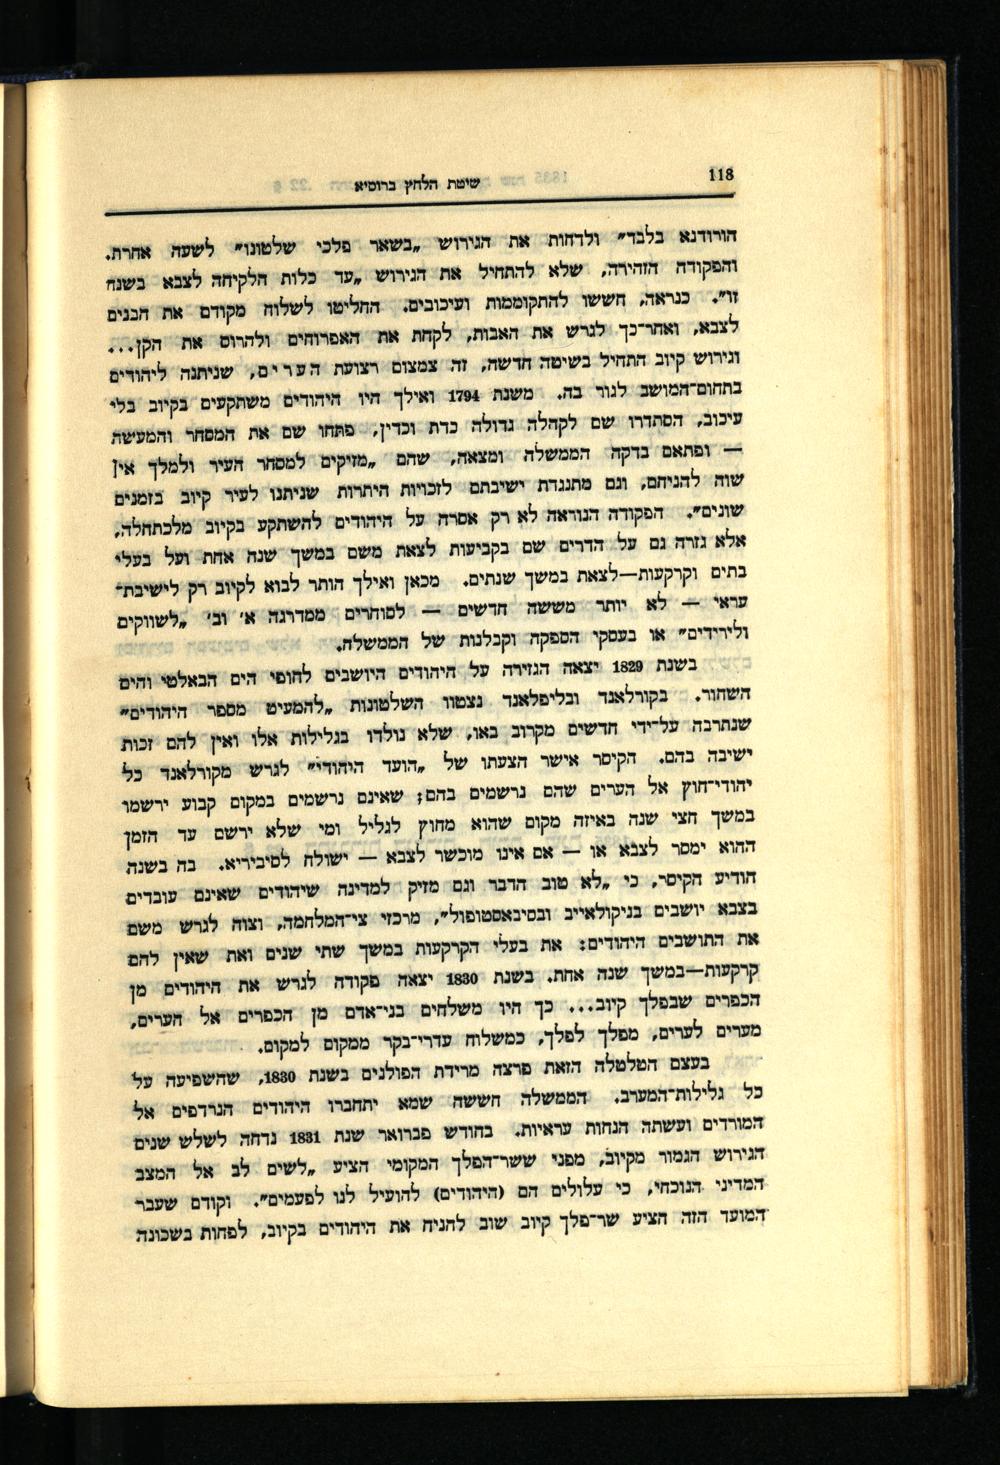 118
שיטת הלחץ ברוסיא
הורודנא בלבד" ולדחות את הגירוש „בשאר פלכי שלטונו" לשעה אחרת.
והפקודה הזהירה, שלא להתחיל את הגירוש „עד כלות הלקיחה לצבא בשנה
זו". כנראה, חששו להתקוממות ועיכובים. החליטו לשלוח מקודם את הבנים
לצבא, ואחר־כך לגרש את האבות, לקחת את האפרוחים ולהרוס את הקן...
וגירוש קיוב התחיל בשיטה חדשה, זה צמצום רצועת הערים, שניתנה ליהודים
בתחום־המושב לגור בה. משנת 1794 ואילך היו היהודים משתקעים בקיוב בלי
עיכוב, הסתדרו שם לקהלה גדולה כדת וכדין, פתחו שם את המסחר והמעשה
— ופתאם בדקה הממשלה ומצאה, שהם „מזיקים למסחר העיר ולמלך אין
שוה להניחם, וגם מתנגדת ישיבתם לזכויות היתרות שניתנו לעיר קיוב בזמנים
שונים". הפקודה הנוראה לא רק אסרה על היהודים להשתקע בקיוב מלכתחלה,
אלא גזרה גם על הדרים שם בקביעות לצאת משם במשך שנה אחת ועל בעלי
בתים וקרקעות—לצאת במשך שנתים. מכאן ואילך הותר לבוא לקיוב רק לישיבת־
עראי — לא יותר מששה חדשים — לסוחרים ממדרגה א' וב' „לשווקים
ולירידים" או בעסקי הספקה וקבלנות של הממשלה.
בשנת 1829 יצאה הגזירה על היהודים היושבים לחופי הים הבאלטי והים
השחור. בקורלאנד ובליפלאנד נצטוו השלטונות „להמעיט מספר היהודים"
שנתרבה על־ידי חדשים מקרוב באו, שלא נולדו בגלילות אלו ואין להם זכות
ישיבה בהם. הקיסר אישר הצעתו של „הועד היהודי" לגרש מקורלאנד כל
יהודי־חוץ אל הערים שהם נרשמים בהם; שאינם נרשמים במקום קבוע ירשמו
במשך חצי שנה באיזה מקום שהוא מחוץ לגליל ומי שלא ירשם עד הזמן
ההוא ימסר לצבא או — אם אינו מוכשר לצבא — ישולח לסיביריא. בה בשנה
הודיע הקיסר, כי „לא טוב הדבר וגם מזיק למדינה שיהודים שאינם עובדים
בצבא יושבים בניקולאייב ובסיבאסטופול", מרכזי צי־המלחמה, וצוה לגרש משם
את התושבים היהודים: את בעלי הקרקעות במשך שתי שנים ואת שאין להם
קרקעות—במשך שנה אחת. בשנת 1830 יצאה פקודה לגרש את היהודים מן
הכפרים שבפלך קיוב... כך היו משלחים בני־אדם מן הכפרים אל הערים,
מערים לערים, מפלך לפלך, כמשלוח עדרי־בקר ממקום למקום.
בעצם הטלטלה הזאת פרצה מרידת הפולנים בשנת 1830, שהשפיעה על
כל גלילות־המערב. הממשלה חששה שמא יתחברו היהודים הנרדפים אל
המורדים ועשתה הנחות עראיות. בחודש פברואר שנת 1831 נדחה לשלש שנים
הגירוש הגמור מקיוב, מפני ששר־הפלך המקומי הציע „לשים לב אל המצב
המדיני הנוכחי, כי עלולים הם (היהודים) להועיל לנו לפעמים". וקודם שעבר
המועד הזה הציע שר־פלך קיוב שוב להניח את היהודים בקיוב, לפחות בשכונה